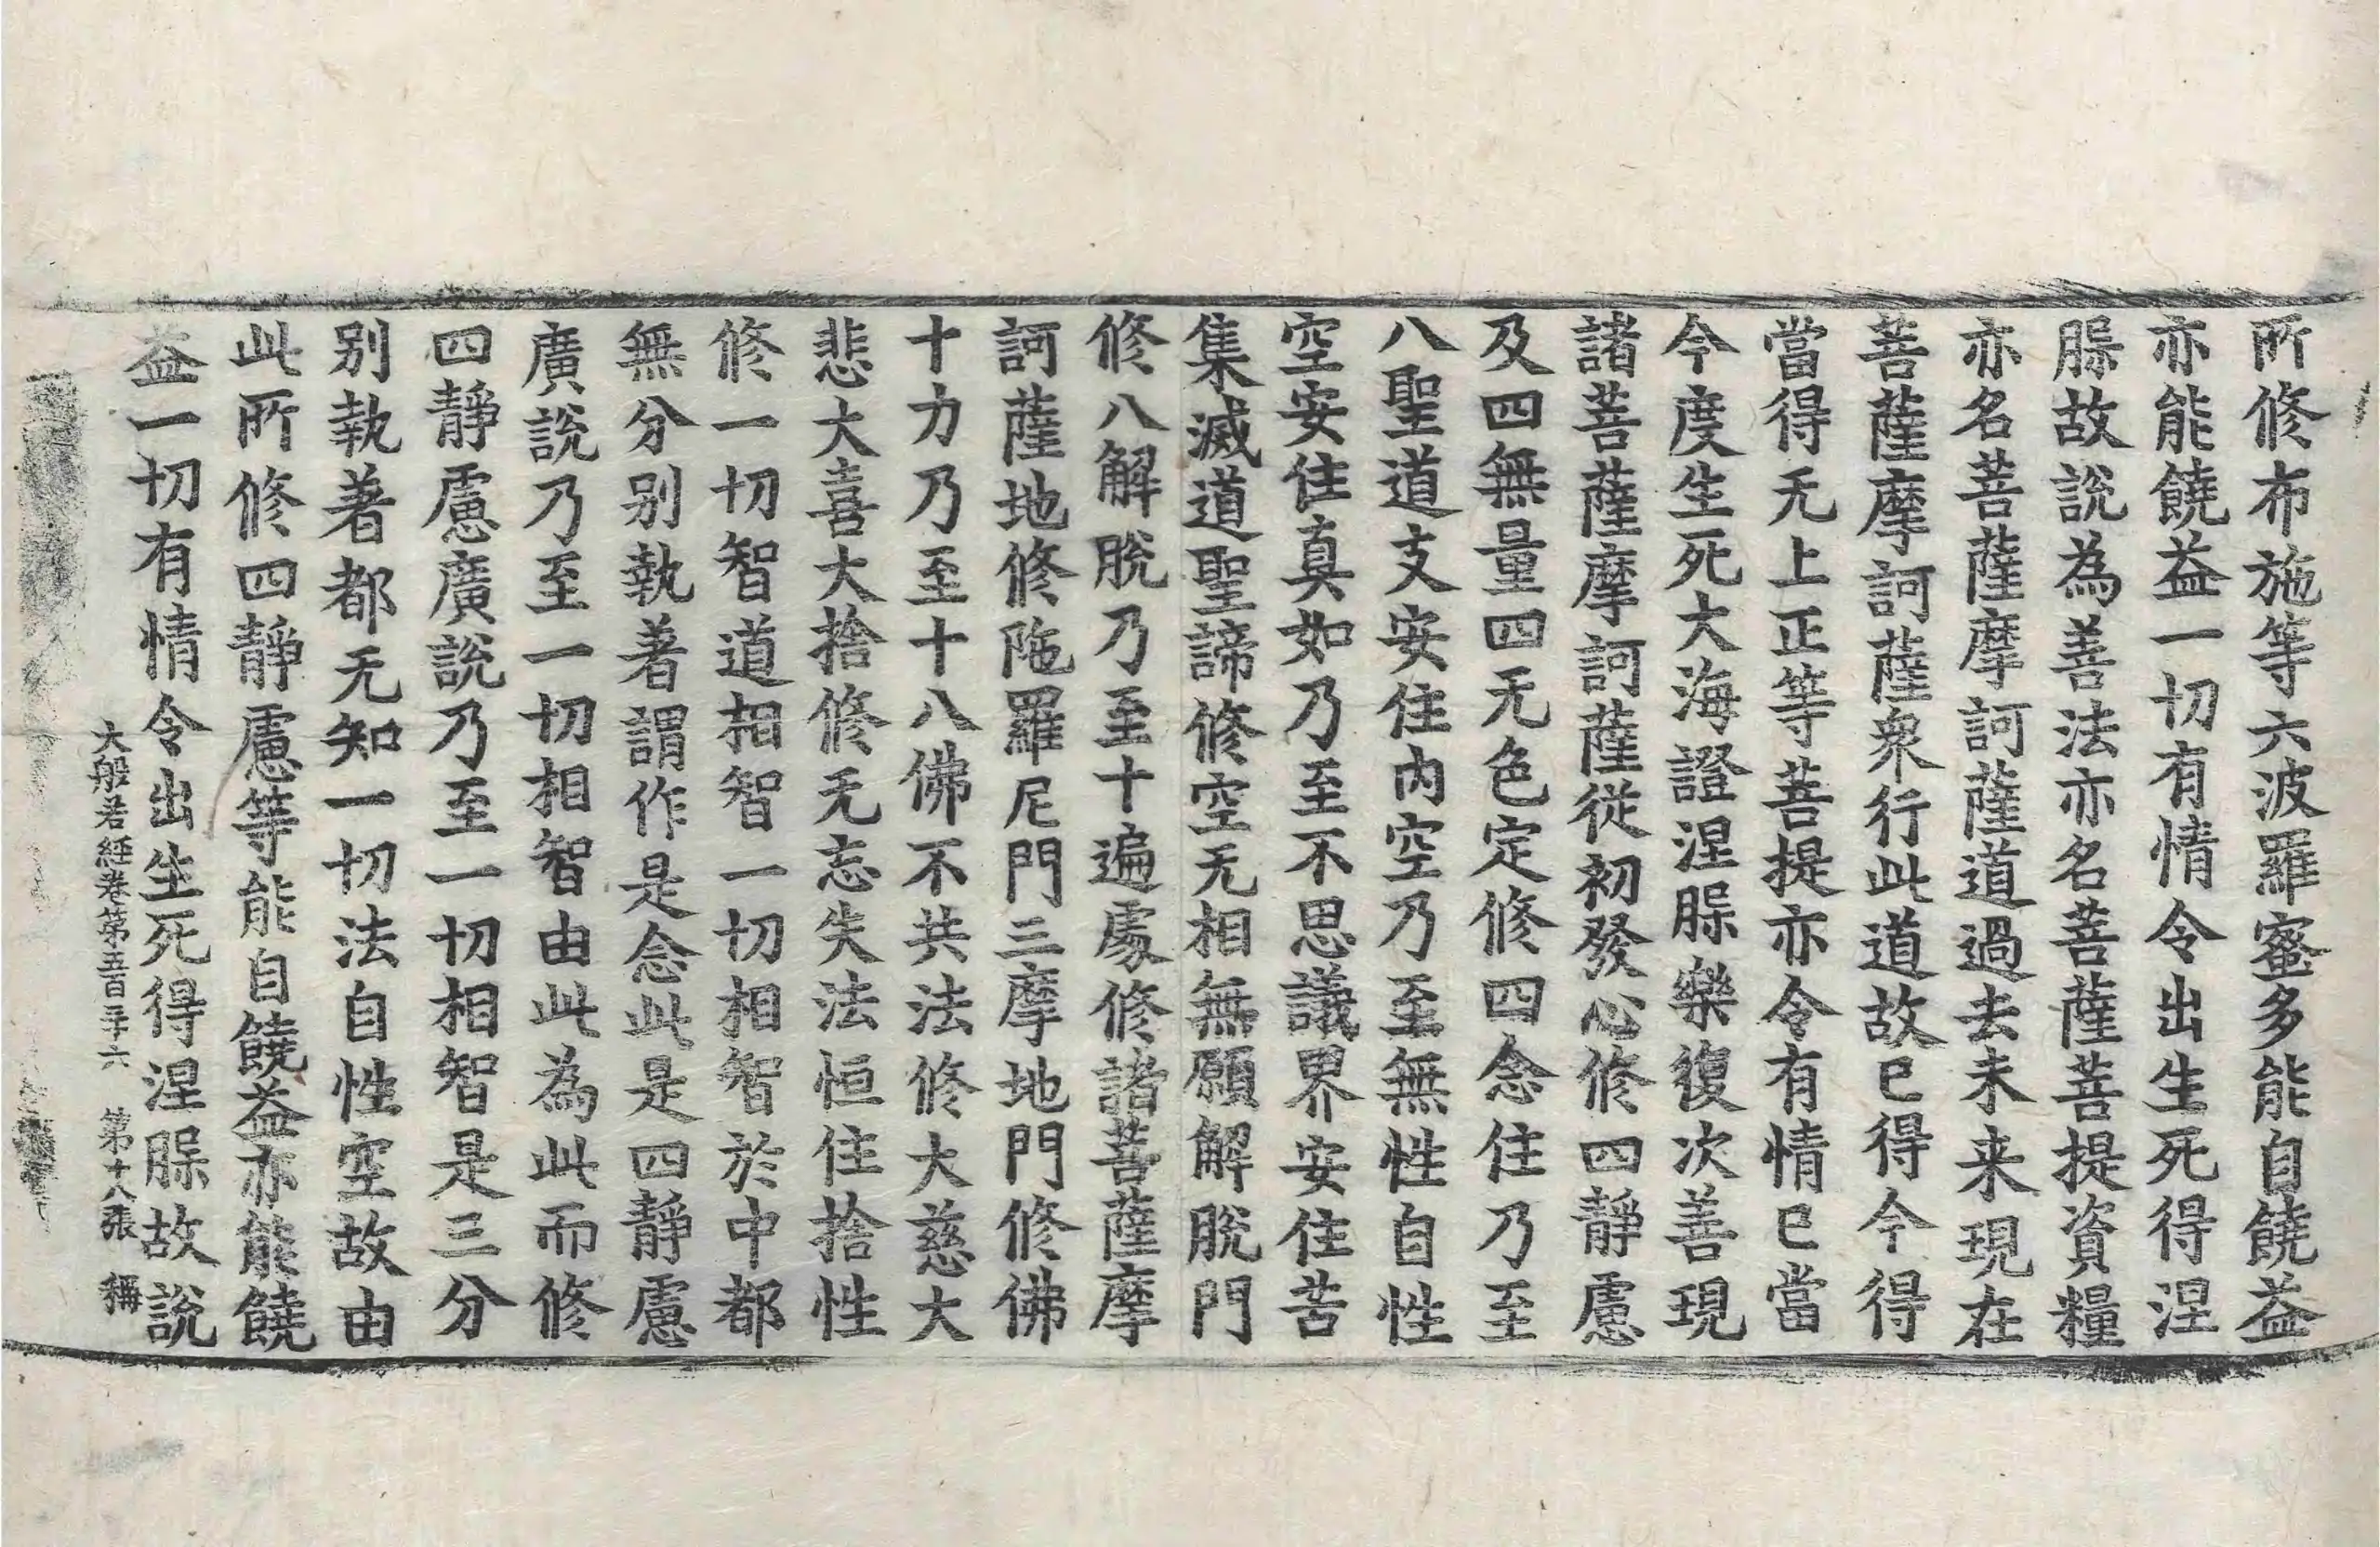 所修布施等六波羅蜜多能自饒益
亦能饒益一切有情令出生死得涅
𣇭故說為善法亦名菩薩菩提資糧
亦名菩薩摩訶薩道過去未来現在
菩薩摩訶薩衆行此道故已得今得
當得无上正等菩提亦令有情已當
今度生死大海證涅𣇭樂復次善現
諸菩薩摩訶薩從初發心修四靜慮
及四無量四无色定修四念住乃至
八聖道支安住內空乃至無性自性
空安住真如乃至不思議界安住苦
集滅道聖諦修空无相無願解脫門
修八解脫乃至十遍處修諸菩薩摩
訶薩地修陁羅尼門三摩地門修佛
十力乃至十八佛不共法修大慈大
悲大喜大捨修无忘失法恒住捨性
修一切智道相智一切相智於中都
無分别執著謂作是念此是四靜慮
廣說乃至一切相智由此為此而修
四靜慮廣說乃至一切相智是三分
别執著都无知一切法自性空故由
此所修四靜慮等能自饒益亦能饒
益一切有情令出生死得涅𣇭故說
大般若經卷第五百二十六 第十八張 稱